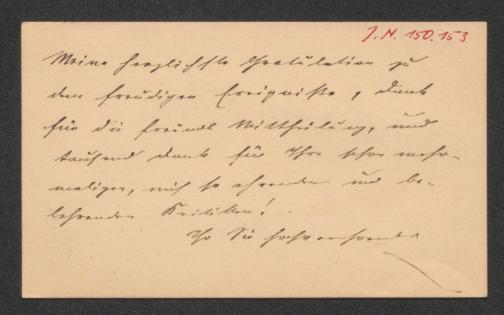 J. N. 150.153
Meine herzlichste Gratulation zu
dem freudigen Ereigniße, Dank
für die freundl Mittheilung, und
tausend Dank für Ihre schon mehr-
maligen, mich so ehrenden und be-
lehrenden Kritiken!
Ihr Sie hochverehrender